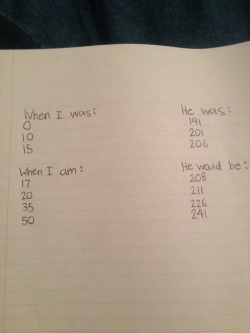 When I was:
0
10
15
He was:
191
201
206
When I am:
17
20
35
50
He would be:
208
211
226
241